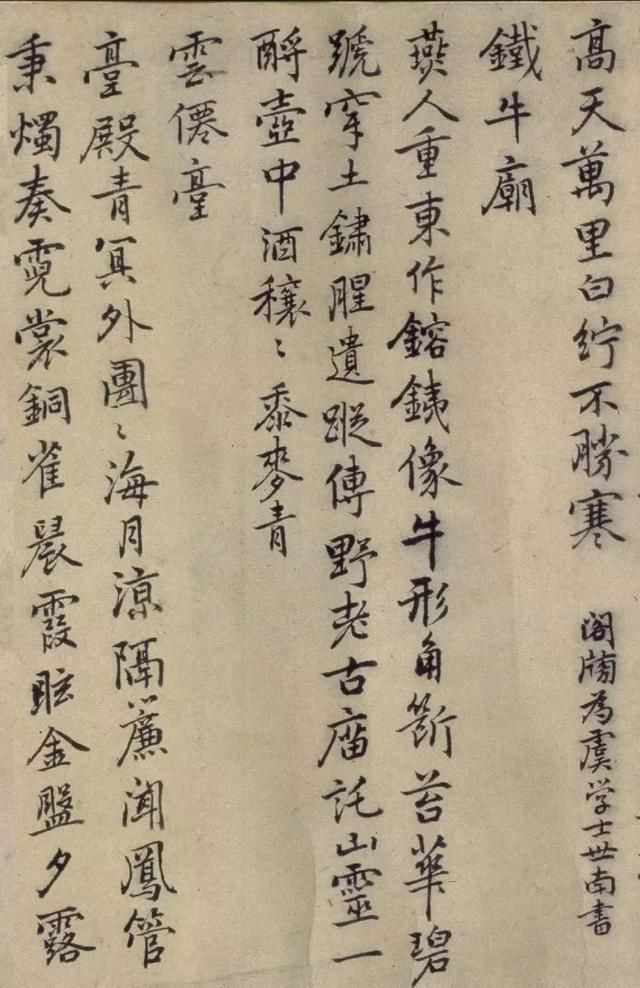 高天萬里白紵不勝寒 閣牓為虞学士世南書
鐵牛廟
燕人重東作鎔鐵像牛形角斷苔華碧
蹄穿土鏽腥遺蹤傳野老古庿託山靈一
酹壺中酒穰〻黍麥青
雲僊臺
臺殿青冥外團〻海月涼隔簾聞鳳管
秉燭奏霓裳銅雀晨霞眩金盤夕露